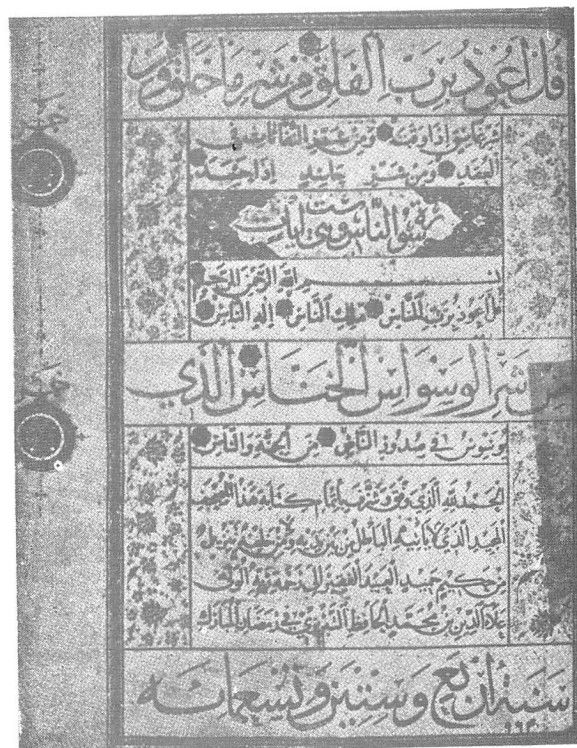 قل اعوذ برب الفلق من شر ما خلق ومن
شر غاسق اذا وقب ومن شر النفاثات في
العقد ومن شر حاسد اذا حسد
سورة الناس ست ايات
بسم الله الرحمن الرحيم
قل اعوذ برب الناس ملك الناس اله الناس
من شر الوسواس الخناس الذي
يوسوس في صدور الناس من الجنة والناس
الحمد لله الذي وفق وشرف باتمام كتابة هذا المصحف
المجيد الذي لا ياتيه الباطل من بين يديه ولا من خلفه تنزيل
من حكيم حميد العبد الفقير الى رحمة ربه
علاء الدين بن محمد الحافظ التبريزي في رمضان المبارك
سنة اربع وستين وتسعمائه